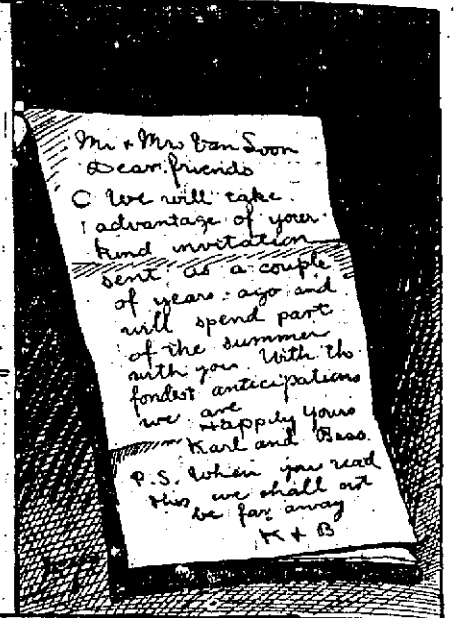 Mr + Mrs Van Loon
Dear friends
We will take
advantage of your
kind invitation
sent us a couple
of years ago and
will spend part
of the summer
with you. With th
fondest anticipations
we are
Happily Yours
Karl and Bess.
P.S. When you read
this we shall not
be far away
K + B